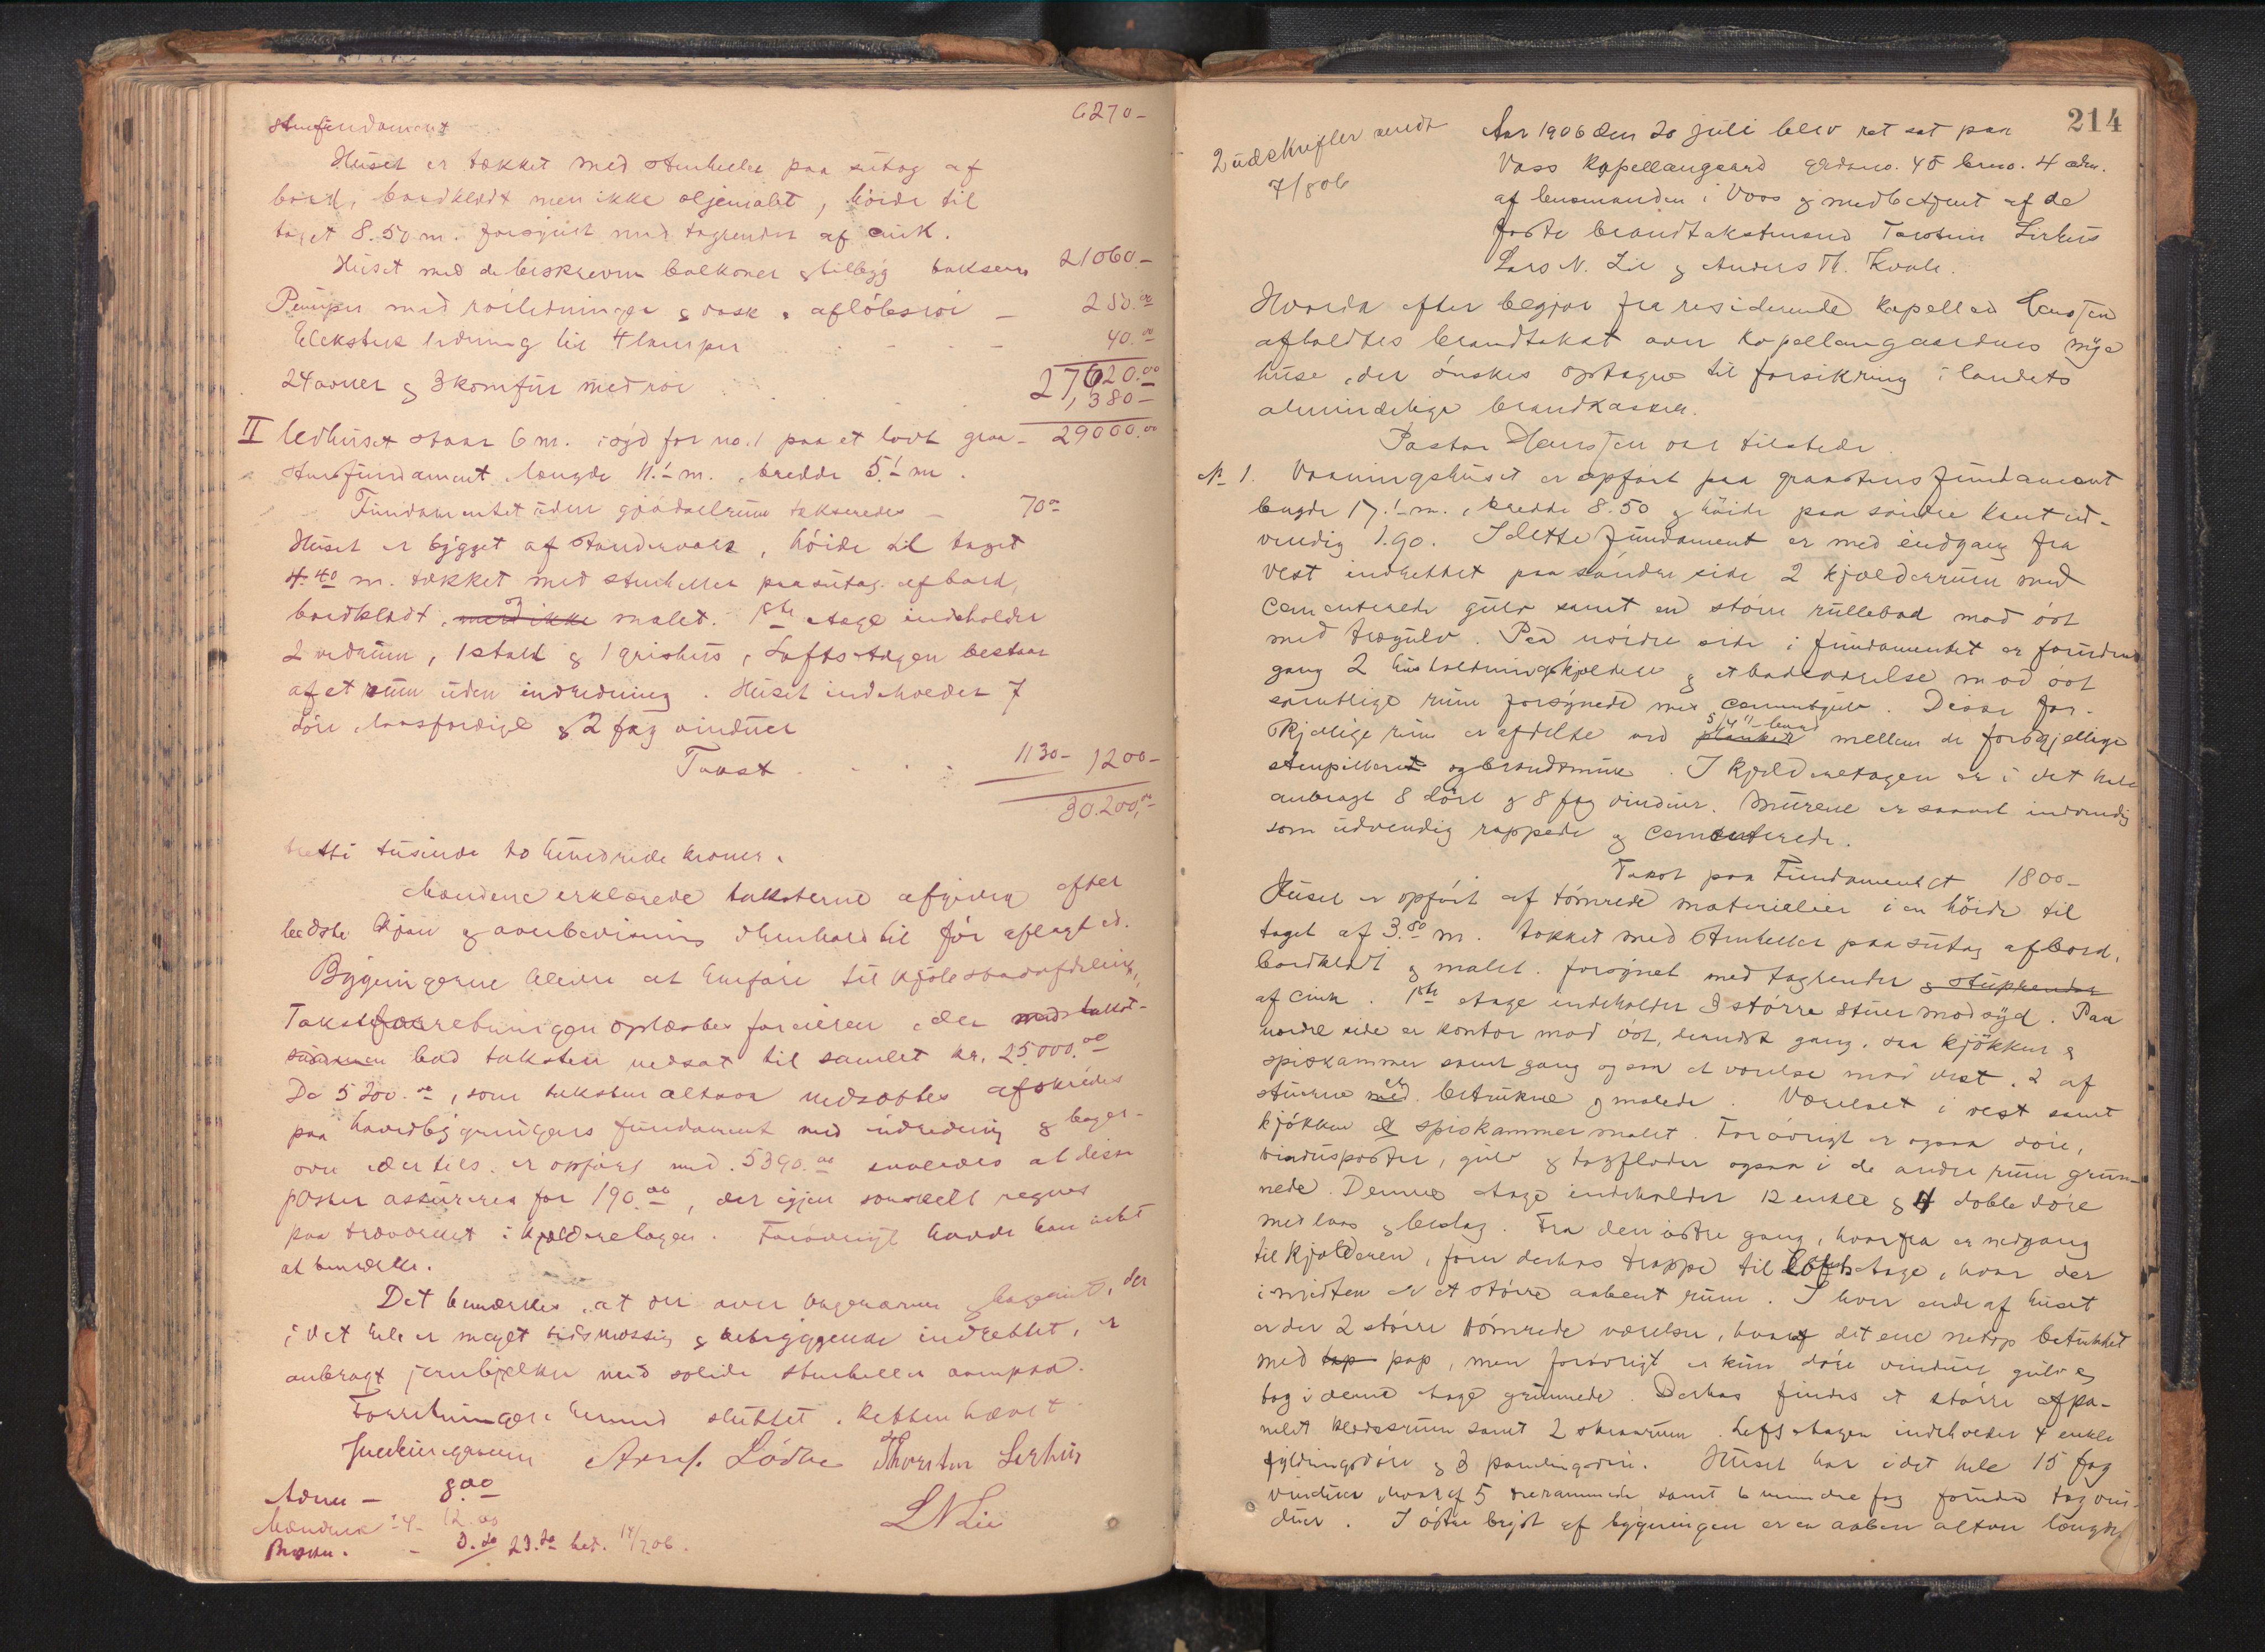 6270-
stenfundament
Huset er tækket med stenheller paa sutag af
bord, bordklædt men ikke oljemalt, höide til
taget 8.50 m. forsynet med tagrender af cink.
Huset med de beskrevne balkoner & tilbyg takseres 21060.-
Pumper med rörledninger & vask & aflöbsrör - 250.00
Elektrisk ledning til 4 lamper - - - 40.00
27,620.00
24 ovner & 3 komfur med rör . . . 1,380-
II Vedhuset staar 6 m. i syd for no. 1 paa et lavt graa- 29000.00
stensfundament længde 11.- m., bredde 5.- m.
Fundamentet uden gjödselrum takseredes - 70.-
Huset er bygget af standerværk, höide til taget
4.40 m. tækket med stenheller paa sutag af bord,
bordklædt, med ikke og malet. 1ste etage indeholder
2 vedrum, 1 stald & 1 grishus, Loftsetagen bestaar
af et rum uden indredning. Huset indeholder 7
döre laasfærdige & 2 fag vinduer
Takst . . . . 1130- 1200-
30.200,00
tretti tusinde to hundrede kroner.
Mændene erklærede taksterne afgivne efter
bedste skjøn & overbevisning i henhold til för aflagt ed.
Bygningerne bliver at henføre til kjöbstadafdeling,
Takstforretningen oplæstes for eieren, der med takst-
summen bad taksten nedsat til samlet kr. 25000.00
De 5200.00, som taksten altsaa nedsættes afskrives
paa hovedbygningens fundament med indredning & bager-
ovn der tils. er opført med 5390.00 saaledes at disse
poster assureres for 190.00, der igjen somhelt regnes
paa træværket i kjælderetagen. Forøvrigt havde han intet
at bemærke.
Det bemærkes, at der over bagerovnen & bageriet, der
i det hele er meget tidsmæssig & betryggende indrettet, er
anbragt jernbjelker med solide stenheller ovenpaa.
Forretningen hermed sluttet. Retten hævet.
Arnf. Lödve Thorsten Lirhus
LNLie
Adm. - 8.00
Mændene 4- 12.00
3.20 23.20 bet. 14/7 06.

214
2 udskrifter sendt
7/8 06
Aar 1906 den 20 juli blev ret sat paa
Voss kapellangaard gardsno. 45 brno. 4 adm.
af lensmanden i Voss & medbetjent af de
faste brandtakstmænd Torstein Lirhus
Lars N. Lie & Anders Th. Kvale.
Hvorda efter begjær fra residerende kapellan
afholdtes brandtakst over kapellangaardens nye
huse, der önskes optagne til forsikring i landets
almindelige brandkasse.
Pastor var tilstede.
No 1. Vaaningshuset er opfört paa graastens fundament
længde 17.- m., bredde 8.50 & höide paa söndre kant ud-
vendig 1.90. I dette fundament er med indgang fra
vest indrettet paa söndre side 2 kjælderrum med
cementerede gulv samt en större rullebod mod öst
med trægulv. Paa nördre side i fundamentet er foruden
gang 2 husholdningskjældere & et badeværelse mod öst
samtlige rum forsynede med cementgulv. Disse for-
skjellige rum er afdelte ved planker 5/4"-bord mellem de forskjellige
stenpillerer og brandmure. I kjælderetagen er i det hele
anbragt 8 döre & 8 fag vinduer. Murene er saavel indvendig
som udvendig rappede & cementerede.
Takst paa Fundamentet 1800-
Huset er opfört af tömrede materialier i en höide til
taget af 3.80 m. tækket med stenheller paa sutag af bord,
bordklædt & malet. forsynet med tagrender & stuprender
af cink. 1ste etage indeholder 3 större stuer mod syd. Paa
nordre side er kontor mod öst, dernæst gang, saa kjökken &
spiskammer samt gang og saa et værelse mod vest. 2 af
stuerne med er betrukne & malede. Værelset i vest samt
kjökken & spiskammer malet. Forövrigt er ogsaa döre,
vinduesposter, gulv & tagflader ogsaa i de andre rum grun-
nede. Denne etage indeholder 12 enkle & 4 doble döre
med laas & beslag. Fra den östre gang, hvorfra er nedgang
til kjælderen, förer derhos trappe til loftsetage, hvor der
i midten er et större aabent rum. I hver ende af huset
er der 2 större tömrede værelser, hvoraf det ene netop betrukket
med tap pap, men forövrigt er kun döre vinduer gulv &
tag i denne etage grunnede. Derhos findes et större afpa-
nelet klædesrum samt 2 skraarum. Loftsetagen indeholder 4 enkle
fyldingsdöre & 3 panelingsdöre. Huset har i det hele 15 fag
vinduer, hvoraf 5 trerammede samt 6 mindre fag foruden tagvin-
duer. I östre bryst af bygningen er en aaben altan længde